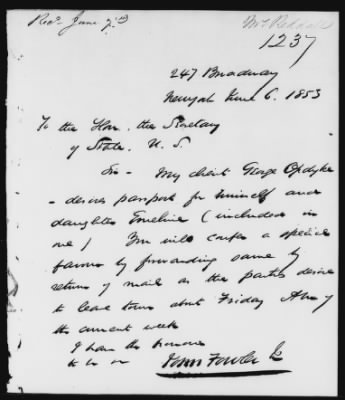 Rec'd June 7th
Mr Reddall
1237
247 Broadway
New York June 6. 1853
To the Hon. the Secretary
of State. U. S.
Sir - My client George Opdyke
- desires passport for himself and
daughter Emeline (included in
one) You will confer a special
favour by forwarding same by
return of mail as the parties desire
to leave town about Friday
the current week
I have the honour
to be &c
John Fowler Jr